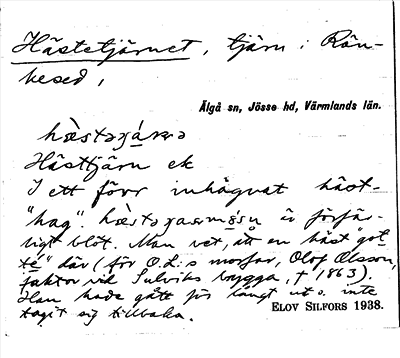 Hästetjärnet, tjärn i Rön-
besed,
Älgå sn, Jösse hd, Värmlands län.
Hästtjärn ek
I ett förr inhägnat häst-
"hag". är förfär-
ligt blöt. Man vet, att en häst "got
te" där (för O.L:s morfar, Olof Olsson,
faktor vid Sulviks brygga, † 1863).
Han hade gått för långt ut o. inte
tagit sig tillbaka.
ELOV SILFORS 1938.